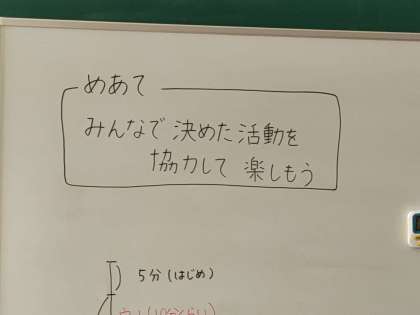 めあて
みんなで決めた活動を
協力して楽しもう
5分(はじめ)